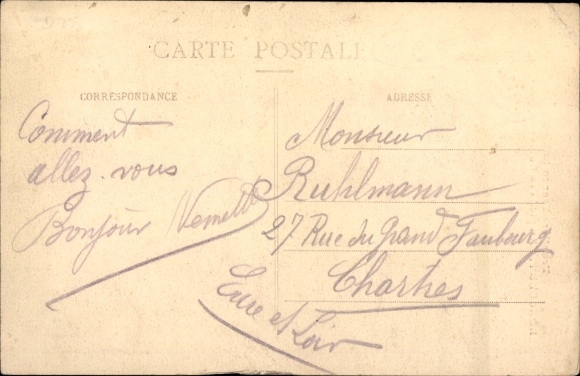 CARTE POSTALE
CORRESPONDANCE
Comment
allez-vous
Bonjour
ADRESSE
Monsieur
Ruhlmann
27 Rue du Grand Faubourg
Chartres
Eure et Loir